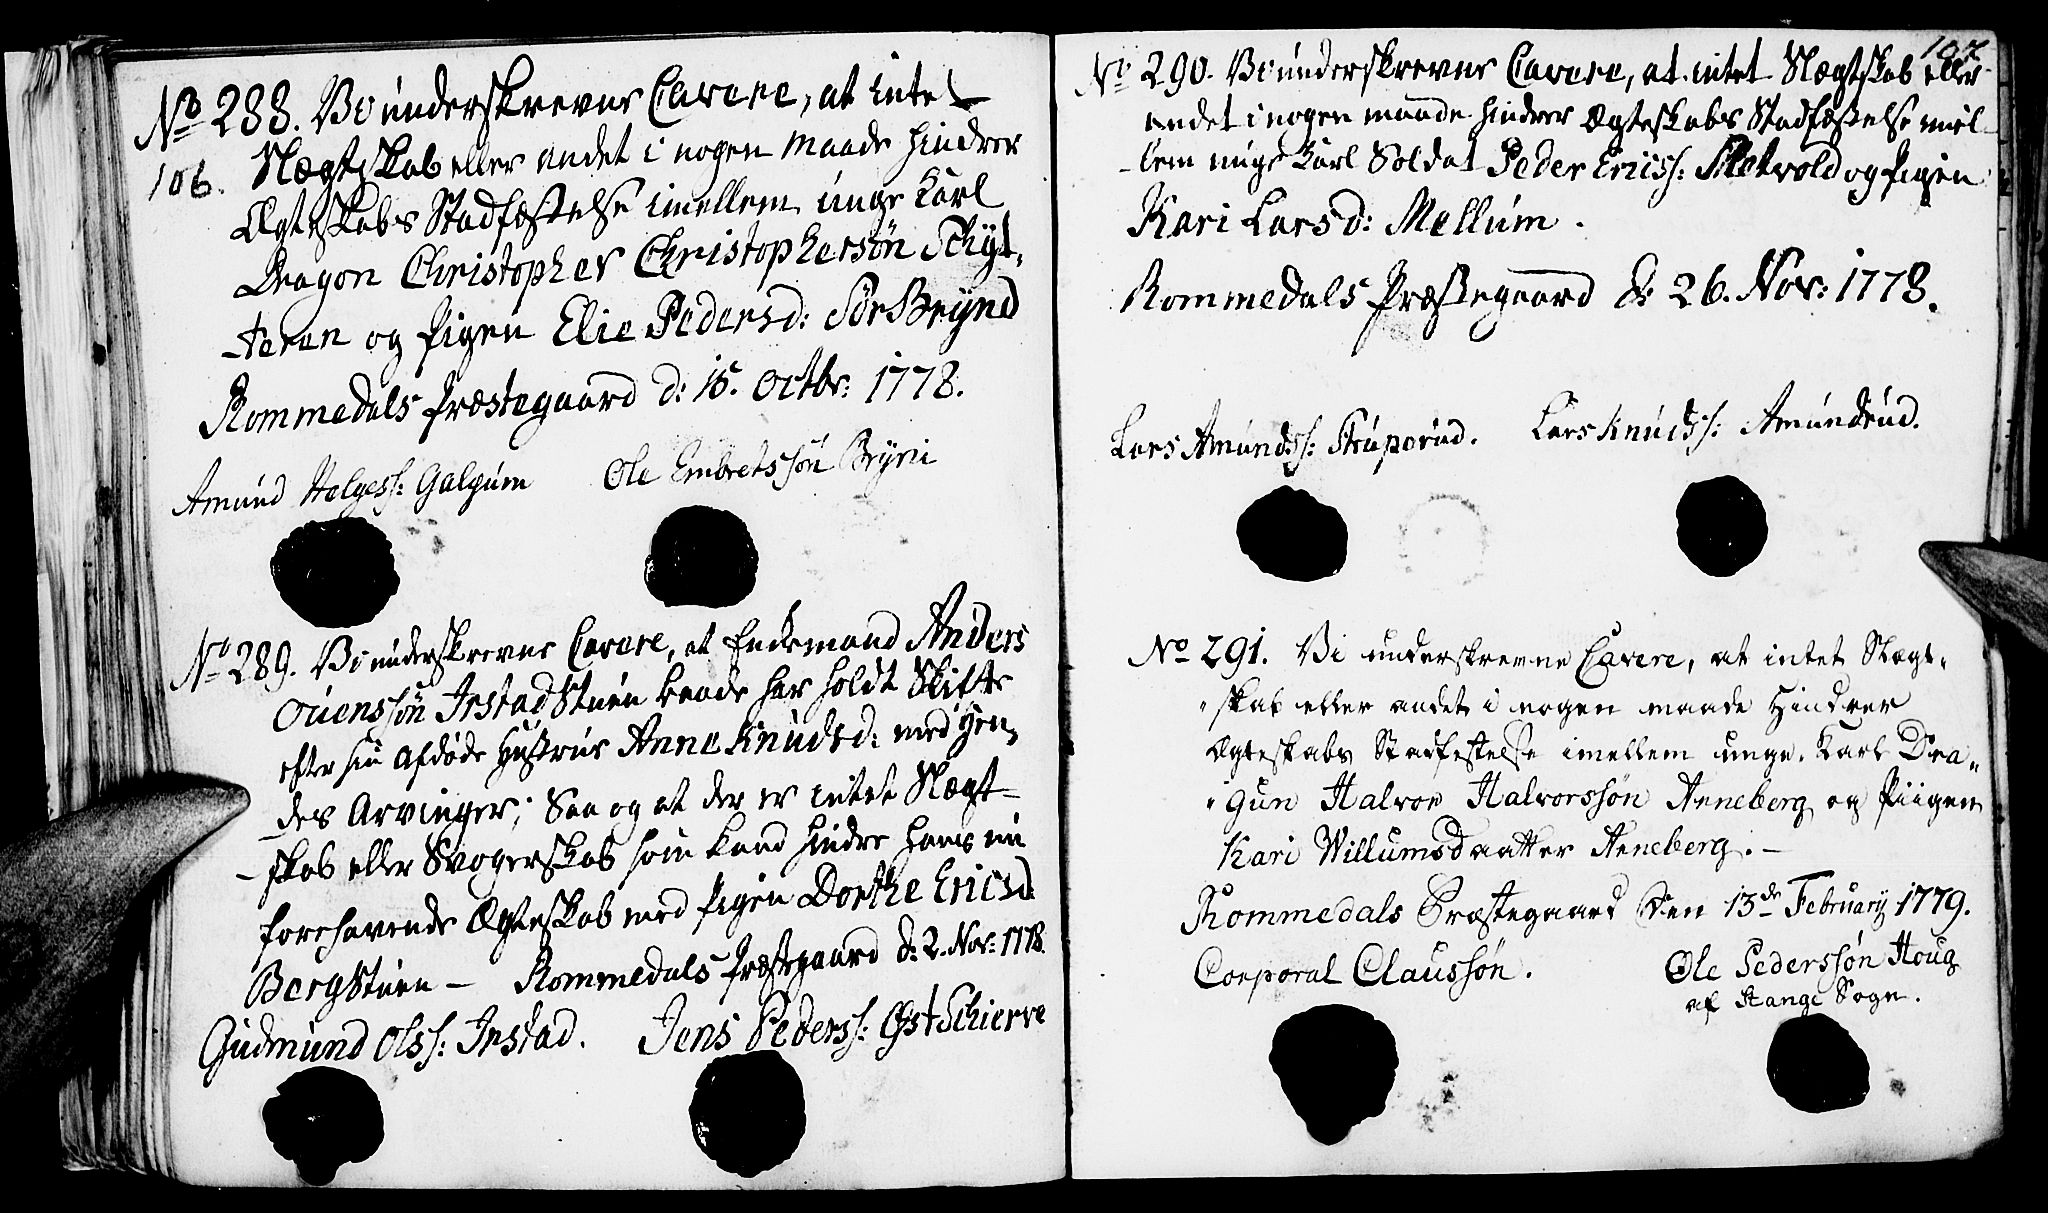 No 288. Vi underskrevne Cavere, at intet
106. Slægtskab eller andet i nogen Maade hindrer
Ægteskabs Stadfæstelse imellem unge Karl
Dragon Christopher Christophersøn Schyt-
teren og Pigen Elie Pedersd: SørBrynd
Rommedals Præstegaard d: 15. Octbr: 1778.
Amund Helgess: Galgum Ole Embretssøn Bryni
No 289. Vi underskrevne Cavere, at Enkemand Anders
Ouenssøn IrstadStuen baade har holdt Skifte
efter sin afdøde Hustrue Anne Knudsd: med hen-
des Arvinger; Saa og at der er intet Slægt-
-skab eller Svogerskab som kand hindre hans nu
forehavende Ægteskab med Pigen Dorthe Ericsd
BergStuen - Rommedals Præstegaard d: 2. Nov: 1778.
Gudmund Olss: Irstad. Jens Pederss: ØstSchierve
107
No 290. Vi underskrevne Cavere, at intet Slægtskab eller
andet i nogen maade hindrer Ægteskabs Stadfæstelse mel-
-lem unge Karl Soldat Peder Ericss: Sletvold og Pigen
Kari Larsd: Mellum.
Rommedals Præstegaard d: 26. Nov: 1778.
Lars Amundss: Struperud. Lars Knudss: Amundrud.
No 291. Vi underskrevne Cavere, at intet Slægt-
-skab eller andet i nogen maade Hindrer
Ægteskabs Stadfestelse imellem unge Karl Dra-
-gun Halvor Halvorssøn Anneberg og Piigen
Kari Willumsdaatter Anneberg. -
Rommedals Præstegaard Den 13de February 1779.
Corporal Claussøn. Ole Pederssøn Houg
af Stange Sogn.